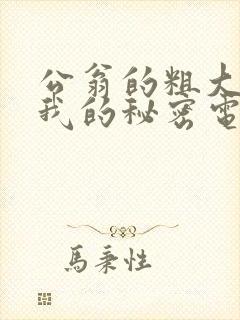 公翁的粗大
我的秘密電
馬秉性